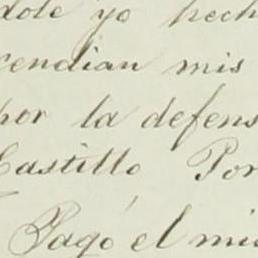 dole yo hech
cendian mis
por la defens
Castillo Por
Pagó el mis